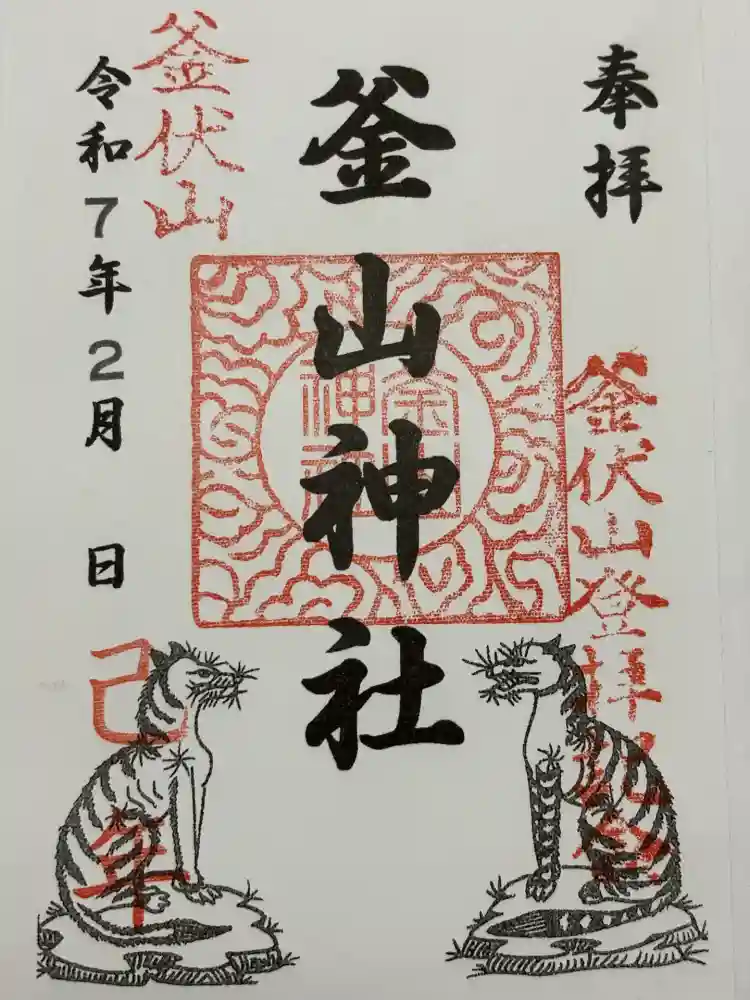 奉拝
釜伏山登拝記念
釜山神社
釜山神社
釜伏山
令和7年2月 日
巳年